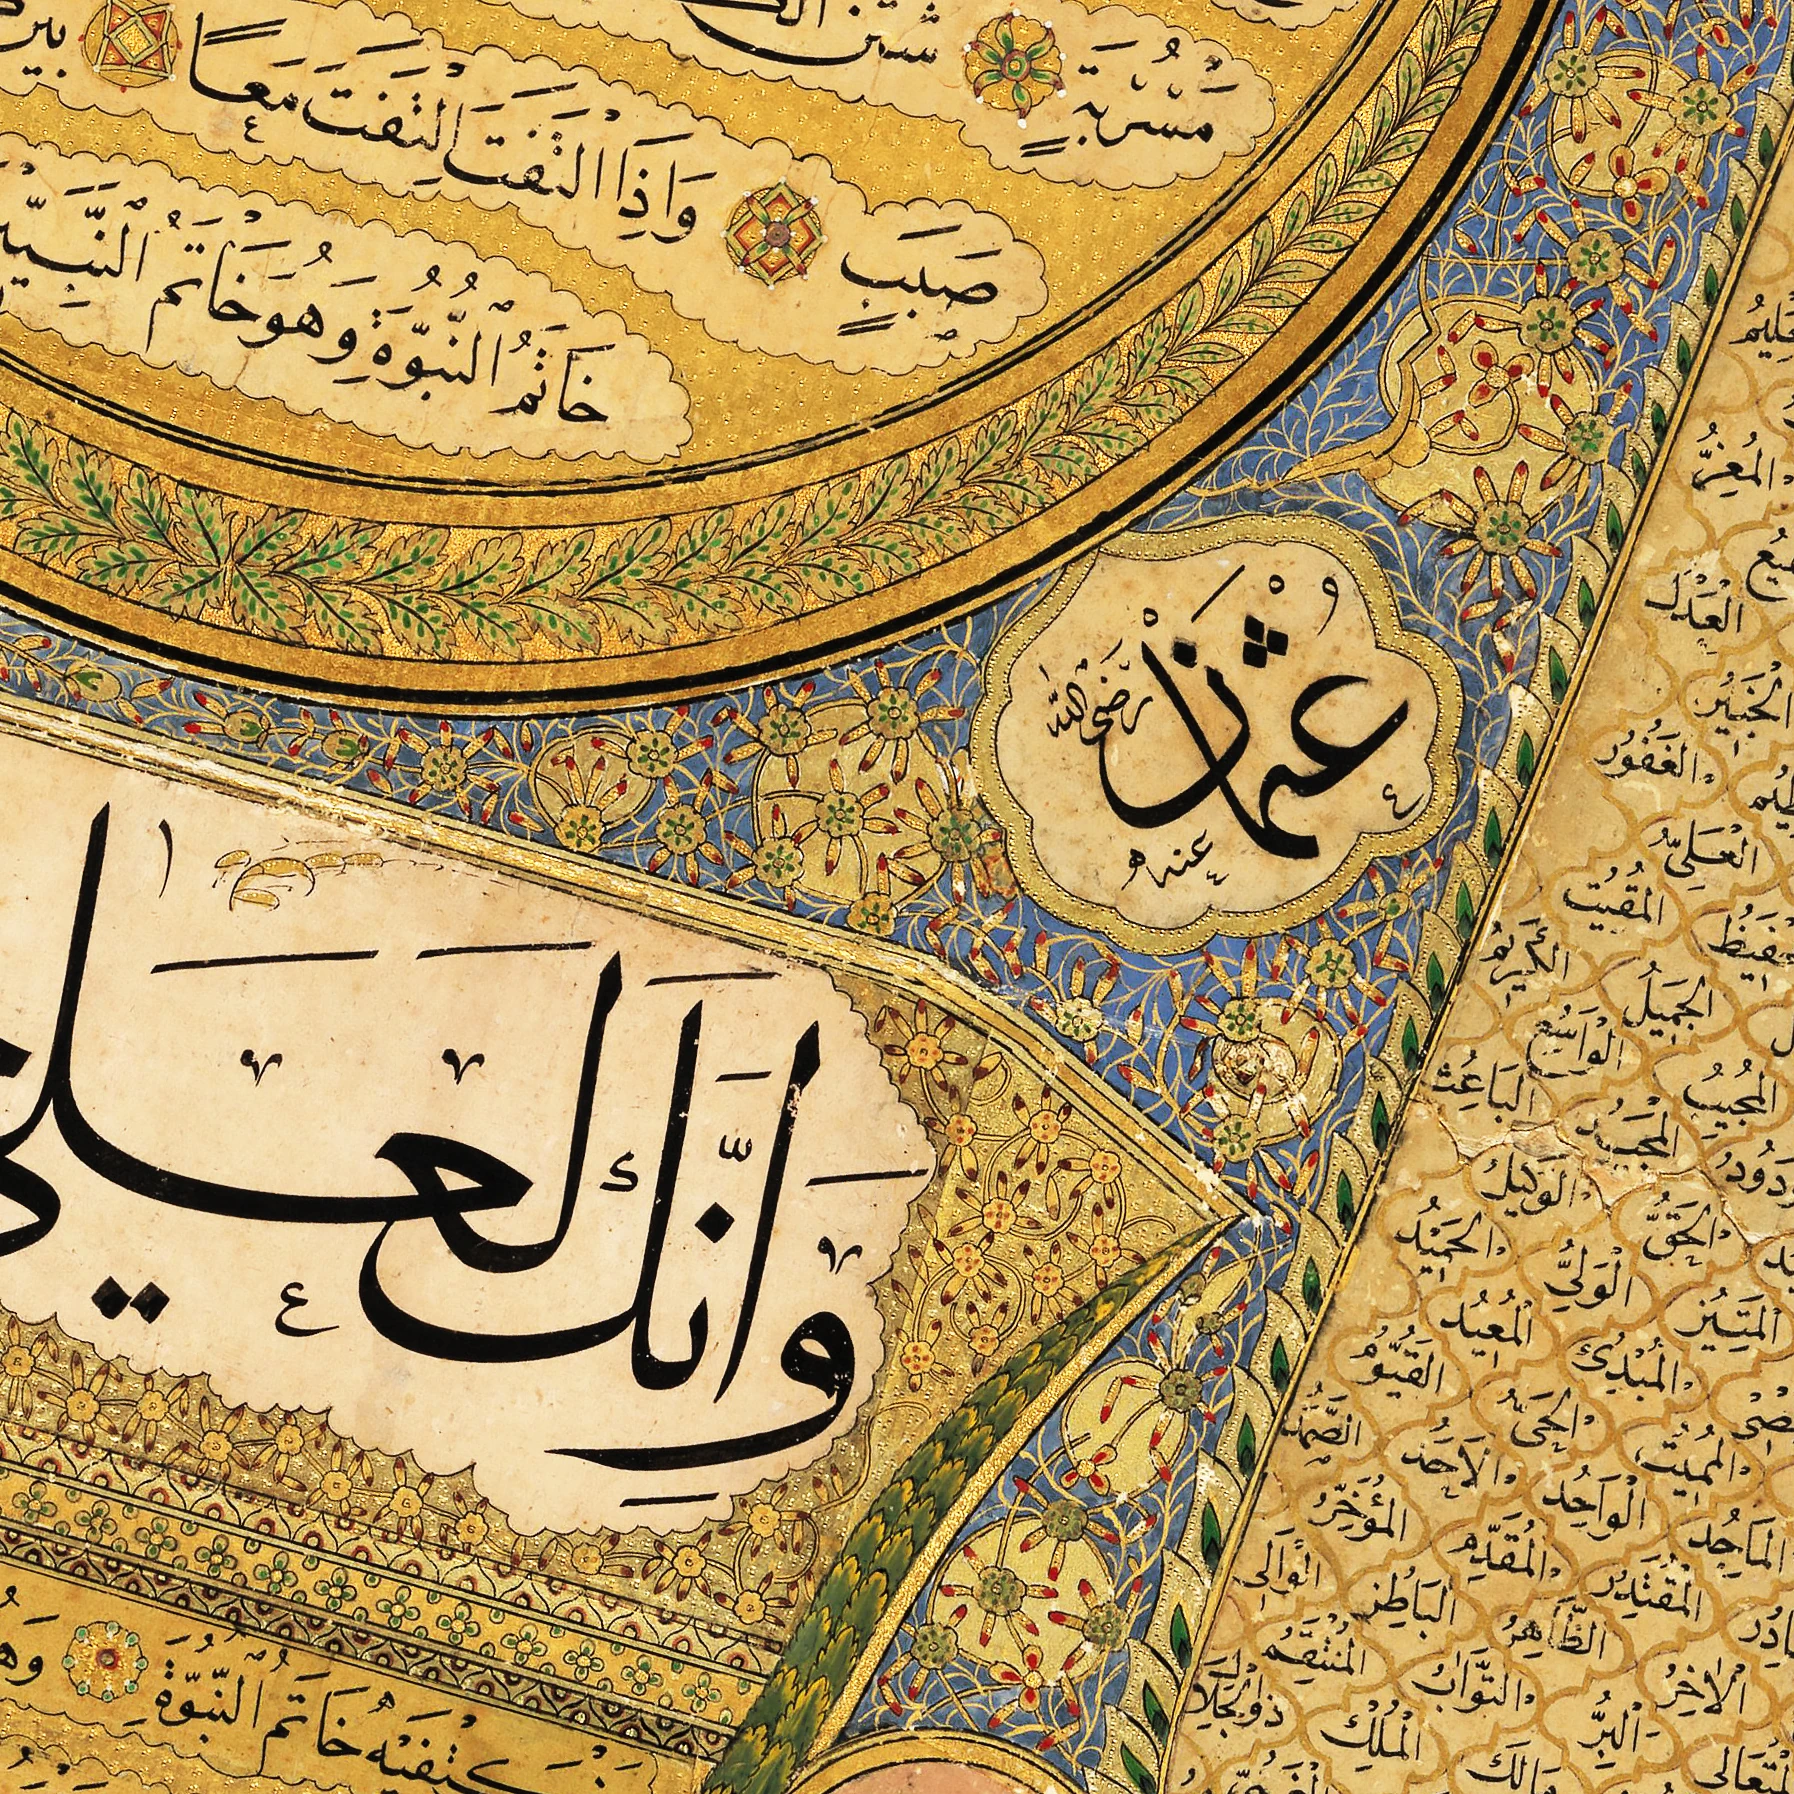 شثن
مسربة
صبب واذا التفت التفت معا بين
خاتم النبوة وهو خاتم النبيين
عثمان رضى الله عنه
وانك لعلى
كتفيه خاتم النبوة وهو
المعز
العدل
الخبير
الغفور
العلى
المقيت
الكريم
الجميل
الواسع
المجيب
الباعث
المجيد
الودود
الوكيل
الحق
الحميد
الولى
المتين
المعيد
المبدئ
القيوم
الحى
المميت
الصمد
الاحد
الواحد
الماجد
المؤخر
المقدم
المقتدر
الوالى
الباطن
الظاهر
الاخر
المنتقم
التواب
البر
المتعالى
ذو الجلال
الملك
مالك